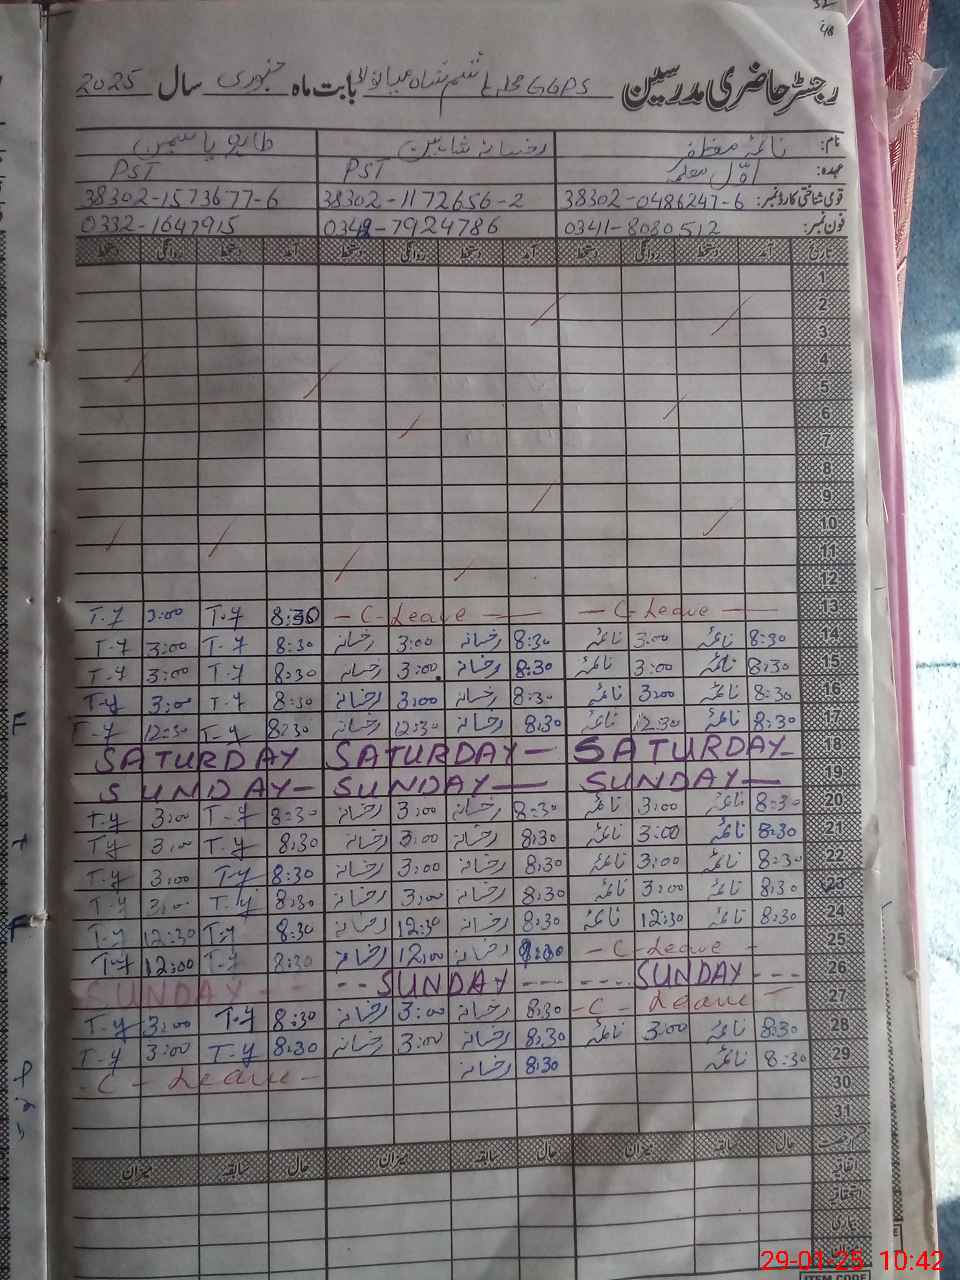 رجسٹر حاضری مدرسین GGPS محلہ شاہ میانوالی بابت ماہ جنوری سال 2025
نام: ناعمہ مظفر رخسانہ شاہین طاہرہ یاسمین
عہدہ: اوّل معلمہ PST PST
قومی شناختی کارڈ نمبر: 38302-0486247-6 38302-1172656-2 38302-1573677-6
فون نمبر: 0341-8080512 0348-7924786 0332-1647915
تاریخ آمد دستخط روانگی دستخط آمد دستخط روانگی دستخط آمد دستخط روانگی دستخط
1
2
3
4
5
6
7
8
9
10
11
12
13 - C-Leave - - C-Leave - 8:30 T-y 3:00 T-y
14 8:30 ناعمہ 3:00 ناعمہ 8:30 رخسانہ 3:00 رخسانہ 8:30 T-y 3:00 T-y
15 8:30 ناعمہ 3:00 ناعمہ 8:30 رخسانہ 3:00 رخسانہ 8:30 T-y 3:00 T-y
16 8:30 ناعمہ 3:00 ناعمہ 8:30 رخسانہ 3:00 رخسانہ 8:30 T-y 3:00 T-y
17 8:30 ناعمہ 12:30 ناعمہ 8:30 رخسانہ 12:30 رخسانہ 8:30 T-y 12:30 T-y
18 SATURDAY- SATURDAY- SATURDAY
19 SUNDAY- SUNDAY- SUNDAY-
20 8:30 ناعمہ 3:00 ناعمہ 8:30 رخسانہ 3:00 رخسانہ 8:30 T-y 3:00 T-y
21 8:30 ناعمہ 3:00 ناعمہ 8:30 رخسانہ 3:00 رخسانہ 8:30 T-y 3:00 T-y
22 8:30 ناعمہ 3:00 ناعمہ 8:30 رخسانہ 3:00 رخسانہ 8:30 T-y 3:00 T-y
23 8:30 ناعمہ 3:00 ناعمہ 8:30 رخسانہ 3:00 رخسانہ 8:30 T-y 3:00 T-y
24 8:30 ناعمہ 12:30 ناعمہ 8:30 رخسانہ 12:30 رخسانہ 8:30 T-y 12:30 T-y
25 - C-Leave - 8:30 رخسانہ 12:00 رخسانہ 8:30 T-y 12:00 T-y
26 SUNDAY --- -- SUNDAY --- SUNDAY ---
27 - C - Leave - 8:30 رخسانہ 3:00 رخسانہ 8:30 T-y 3:00 T-y
28 8:30 ناعمہ 3:00 ناعمہ 8:30 رخسانہ 3:00 رخسانہ 8:30 T-y 3:00 T-y
29 8:30 ناعمہ 8:30 رخسانہ - C - Leave -
30
31
حال سابقہ میزان حال سابقہ میزان حال سابقہ میزان
اتفاقیہ
استحقاقیہ
بیماری
29-01-25 10:42
ITEM CODE